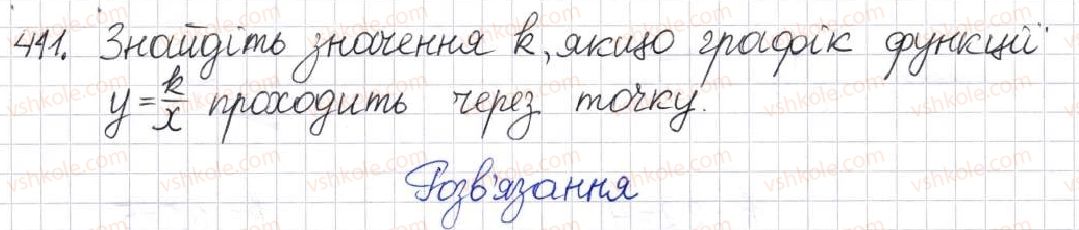 441. Знайдіть значення k, якщо графік функції
y = k/x проходить через точку.
Розв'язання